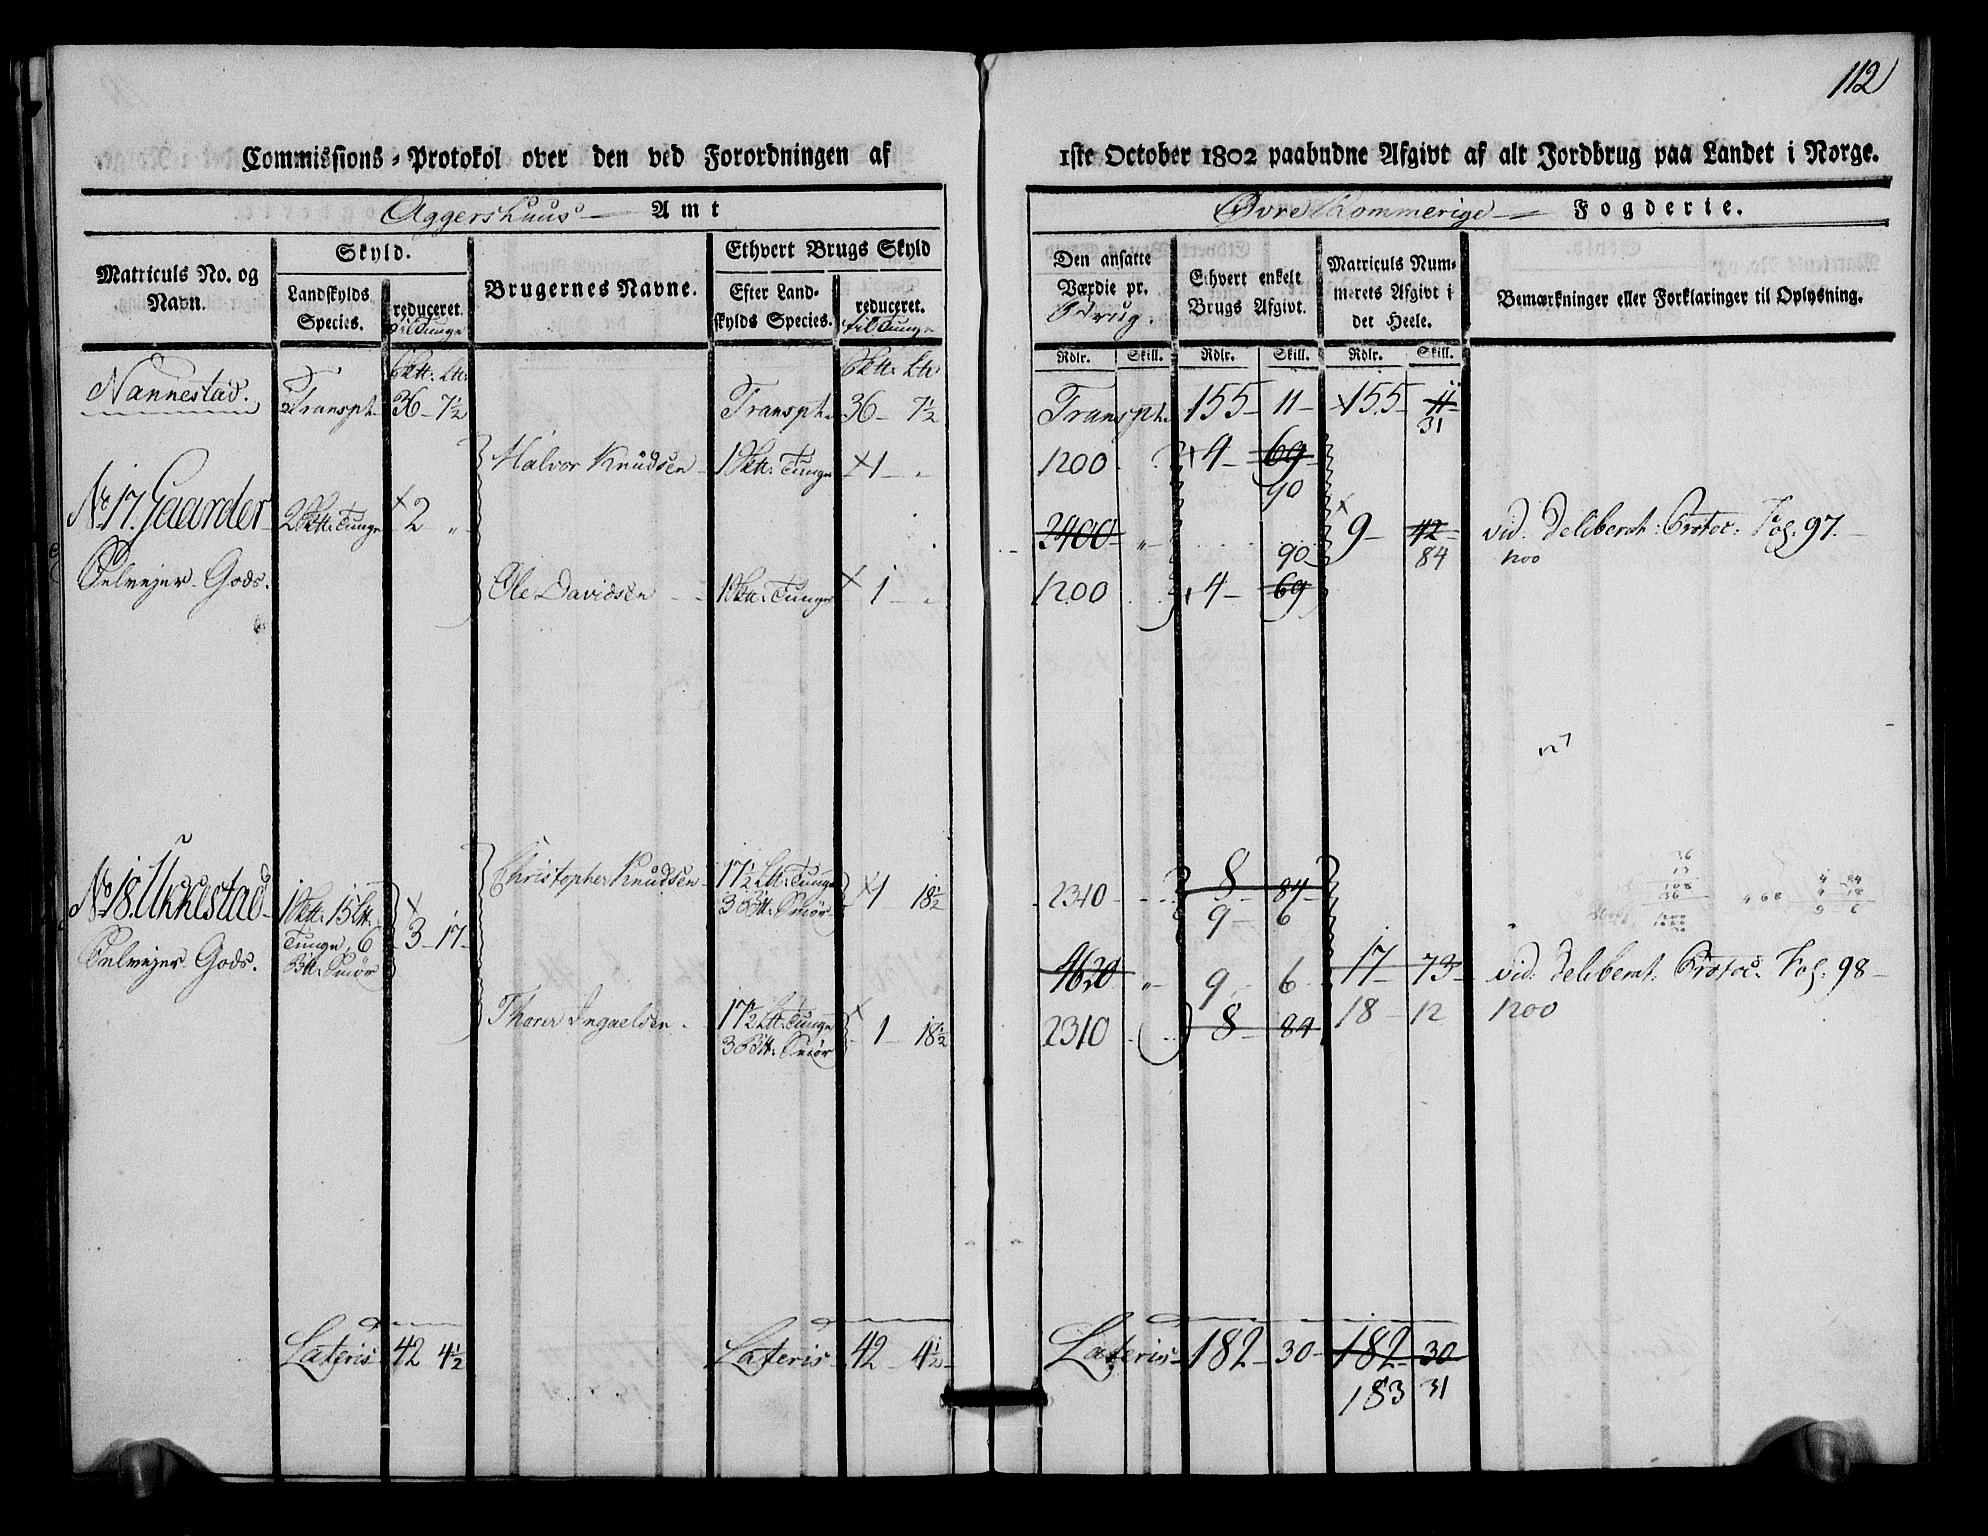 112
Commissions-Protokol over den ved Forordningen af 1ste October 1802 paabudne Afgivt af alt Jordbrug paa Landet i Norge.
Aggershuus Amt
Øvre Rommerige Fogderie.
Matriculs No. og Navn.
Skyld.
Landskylds Species.
reduceret. til Tunge
Brugernes Navne.
Ethvert Brugs Skyld
Efter Landskylds Species.
reduceret. til Tunge
Den ansatte Værdie pr.
Ethvert enkelt Brugs Afgivt.
Matriculs Nummerets Afgivt i det Heele.
Bemærkninger eller Forklaringer til Oplysning.
Rdlr. Skill. Rdlr. Skill. Rdlr. Skill.
Skt: Lt: Skt: Lt:
Nannestad. Transpt. 36 - 7½ Transpt. 36 - 7½ Transpt. 155 - 11 - 155 - 11
31
Halvor Knudsen 1 Skt: Tunge 1 - " 1200 4 - 69
90
No 17. Gaarder 2 Skt: Tunge 2 " 2400 " 9 - 42 vid. Deliberat: Protoc. Fol. 97.
90 84 1200
Selvejer Gods. Ole Davidsen 1 Skt: Tunge 1 - " 1200 4 - 69
Christopher Knudsen 17½ Lt: Tunge
3 Bt: Smør 1 18½ 2310 8 84
9 - 6
No 18. Ukkestad 1 Skt: 15 Lt:
Tunge, 6
Bt: Smør 3 - 17
Selvejer Gods. 4620 " 9 6 17 73 vid. Deliberat. Protoc. Fol: 98
18 12 1200
Thorer Ingaelsen 17½ Lt: Tunge
3 Bt: Smør 1 18½ 2310 8 84
Lateris 42 4½ Lateris 42 4½ Lateris 182 - 30 - 182 - 30
183 31